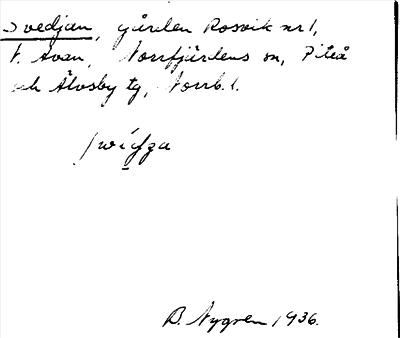 Svedjan, gården Rosvik nr 1,
N. Åvan, Norrfjärdens sn, Piteå
och Älvsby tg, Norrb. l.
B. Nygren 1936.